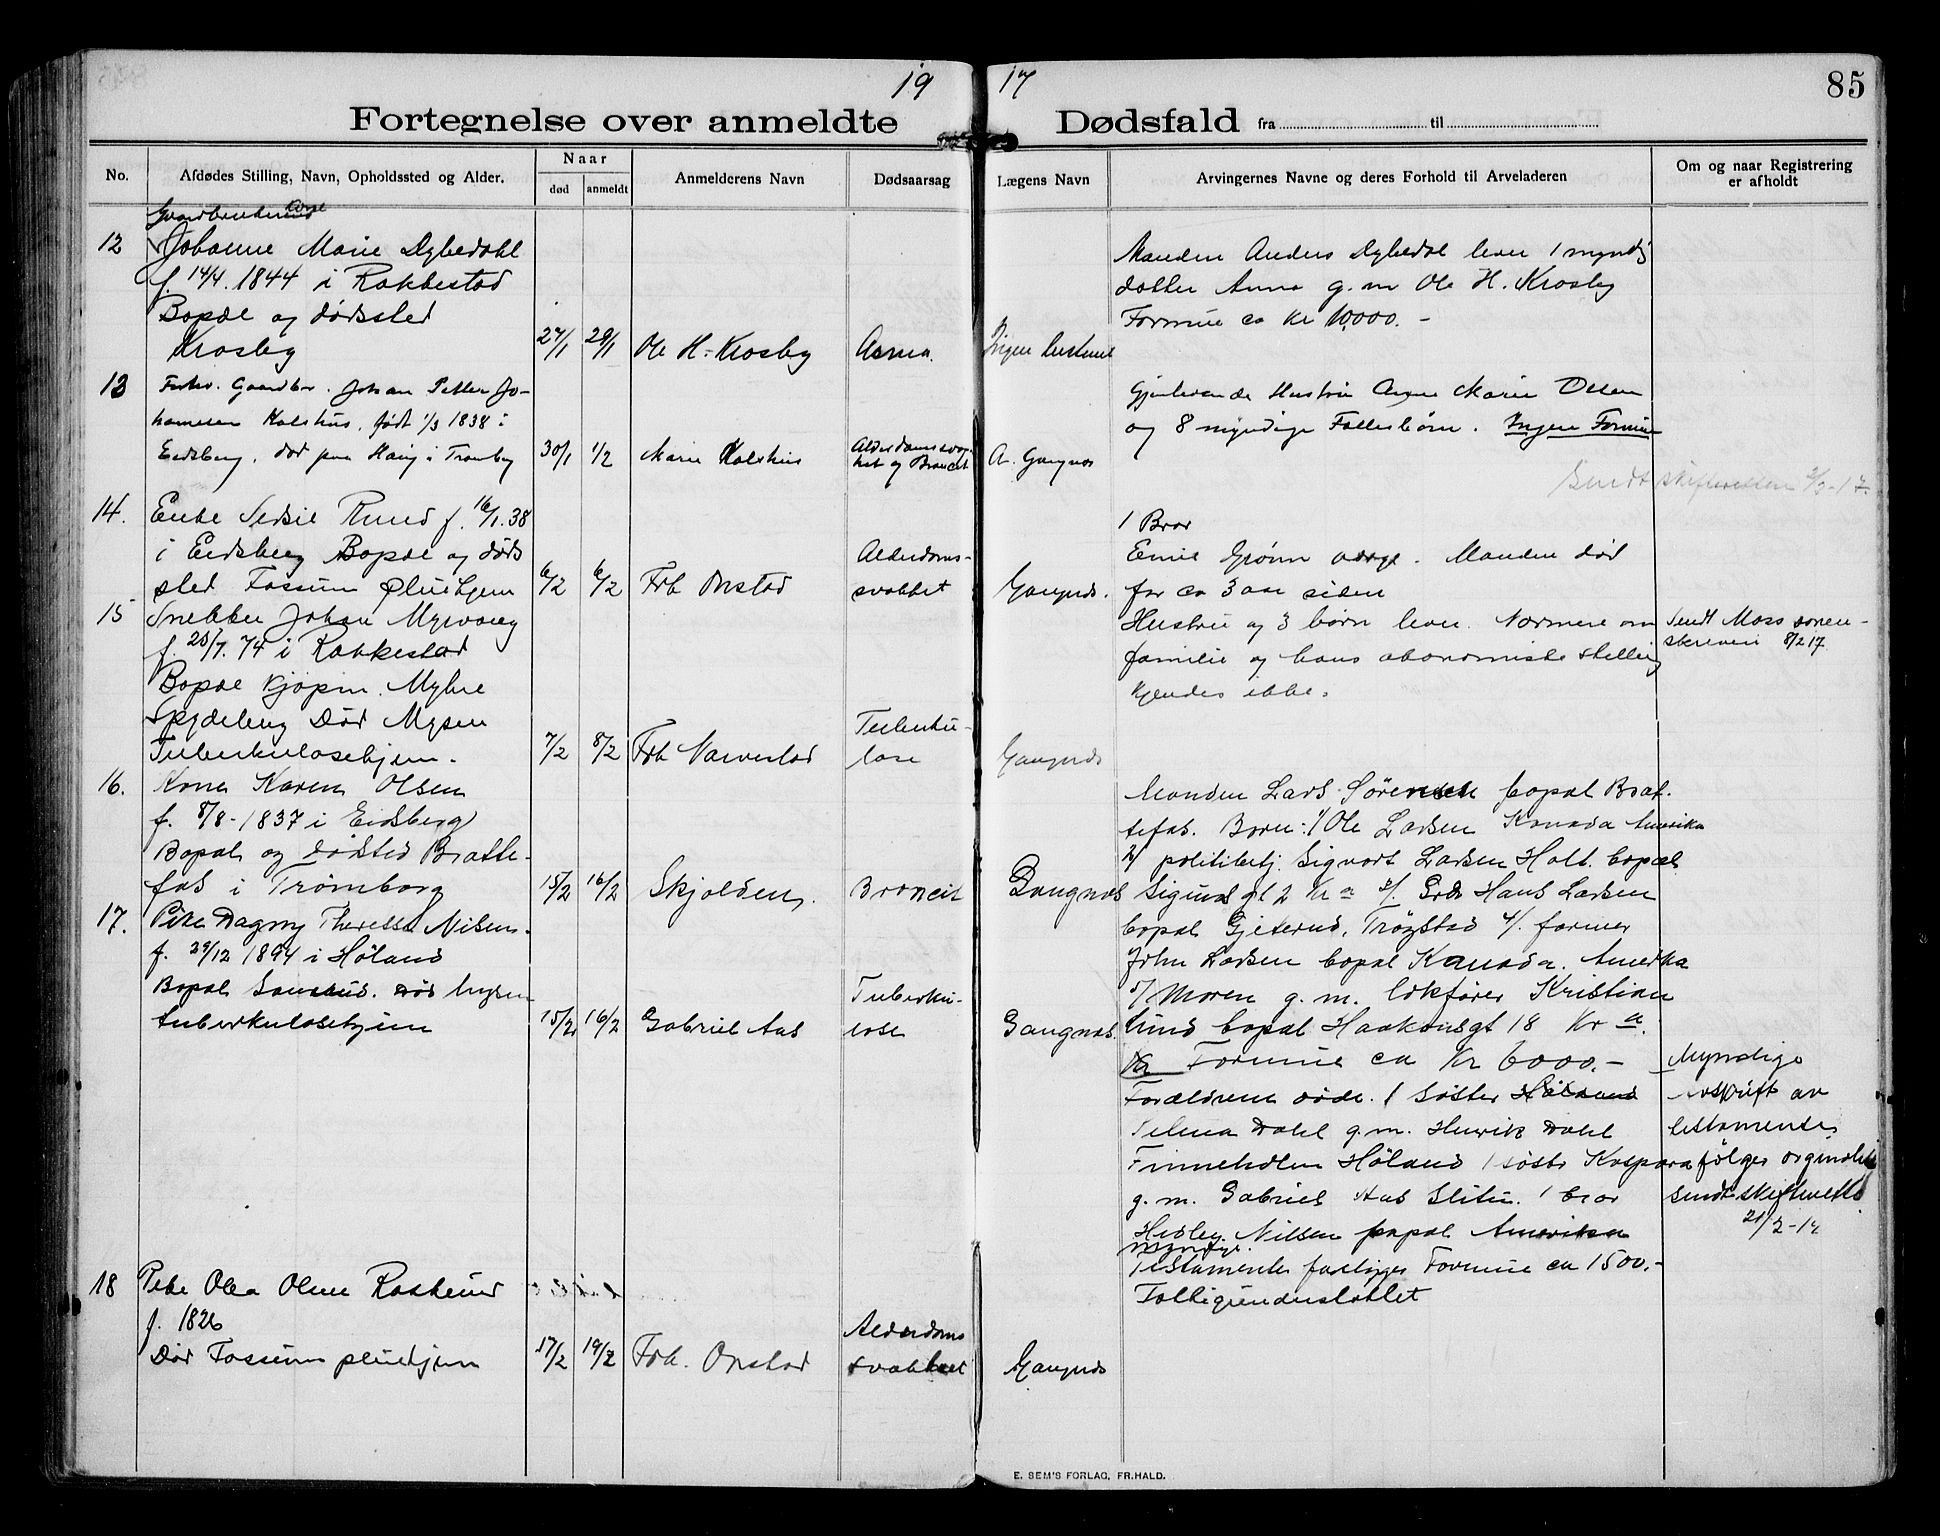 19 17
85
Fortegnelse over anmeldte Dødsfald fra til
No.
Afdødes Stilling, Navn, Opholdssted og Alder.
Naar
død
anmeldt
Anmelderens Navn
Dødsaarsag
Lægens Navn
Arvingernes Navne og deres Forhold til Arveladeren
Om og naar Registrering
er afholdt
12
Johanne Marie Dybedahl
f. 14/4. 1844 i Rakkestad
Bopæl og dødssted
Krosby
27/1 29/1 Ole H. Krosby
Manden Anders Dybedal lever 1 myndig
datter Anna g. m Ole H. Krosby
Formue ca Kr 10,000. -
13
Forhv. Gaardbr. Johan Petter Jo-
hannesen Kolshus, født 1/3 1838 i
Eidsberg, død paa Haug i Trømborg
30/1 1/2 Marie Kolshus
Alderdomssvag-
het og Broncit
A. Gangnæs
Gjenlevende Hustru Anne Marie Olsen
og 8 myndige Fællesbørn. Ingen Formue
Sendt skifteretten 2/3-17.
14.
Enke Sedsil Ruud f. 16/1.38
i Eidsberg Bopæl og døds
sted Fossum pleiehjem
6/2 6/2 Frk Onstad
Alderdoms-
svakhet
Gangnæs.
1 Bror
Emil Grønn værge. Manden død
for ca 3 aar siden
15
Snekker Johan Myrvang
f. 23/7. 74 i Rakkestad
Bopæl Kjøpm. Myhre
Spydeberg Død Mysen
Tuberkulosehjem.
7/2 8/2 Frk Narvestad
Tuberku-
lose
Gangnæs
Hustru og 3 børn lever. Nærmere om
familie og hans økonomiske stilling
kjendes ikke.
Sendt Moss soren-
skriveri 8/2 17.
16.
Kone Karen Olsen
f. 8/8-1837 i Eidsberg
Bopæl og dødsted Bratte-
fas i Trømborg
15/2 16/2 Skjolden.
Broncit
Gangnæs
Manden Lars Sørensen bopæl Brat-
tefas. Børn: 1/ Ole Larsen Kanada Amerika
2/ politibetj. Sigvart Larsen Holt. bopæl
Siguras gt 2 Kr a 3/. Grdr Hans Larsen
bopæl Gjeterud, Trøgstad 4/. farmer
John Larsen bopæl Kanada. Amerika
5/ Maren g. m. lokfører Kristian
Lund bopæl Haakonsgt 18 Kr a.
Formue ca Kr 6000.-
17.
Pike Dagny Theresse Nilsen.
f. 29/12 1894 i Høland
Bopæl Sanshus. død Mysen
tuberkulosehjem
15/2 16/2 Gabriel Aas
Tuberku-
lose
Gangnæs.
Forældrene døde. 1 søster Høland
Selma Dahl g. m. Henrik Dahl
Finneholen Høland 1 søstr Kaspara
g. m. Gabriel Aas Slitu. 1 bror
Hedley Nilsen bopæl Amerika
myndige.
Testamente foreligger Formue ca 1500.-
Myndige
Avskrift av
testamente
følger orginalen
sendt skifterette
21/2-17
18
Pike Olea Olsen Raskerud
f. 1826
Død Fossum pleiehjem
17/2 19/2 Frk. Onstad
Alderdoms
svakhet
Gangnæs
Fattigunderstøttet
E. SEM'S FORLAG, FR.HALD.